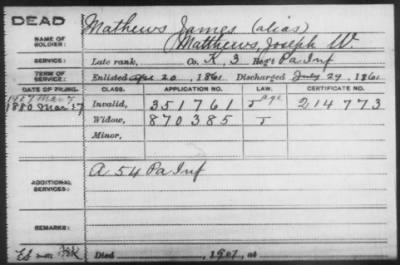 DEAD
Mathews James (alias)
NAME OF SOLDIER: Matthews, Joseph W.
SERVICE: Late rank, Co. K. 3 Reg't Pa Inf
TERM OF SERVICE: Enlisted Apr 20, 1861 Discharged July 29, 1861
DATE OF FILING. CLASS. APPLICATION NO. LAW. CERTIFICATE NO.
1880 Mar Invalid, 351761 age 214773
1907 Mar 7 Widow, 870385
Minor,
ADDITIONAL SERVICES: A 54 Pa Inf
REMARKS:
Died , 1907, at